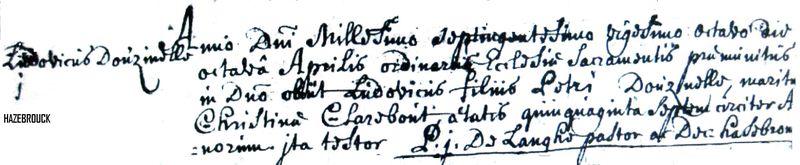 Ludovicus Douzinelle
1
HAZEBROUCK
Anno Dni Millesimo septingentesimo vigesimo octavo die
octavâ Aprilis ordinariis Ecclesiæ Sacramentis præmunitus
in Dno obiit Ludovicus filius Petri Douzinelle, marit
Christinæ Clarebout ætatis quinquaginta septem circiter A
=norum ita testor P. j. De Langhe pastor ac Dec: hasebrou